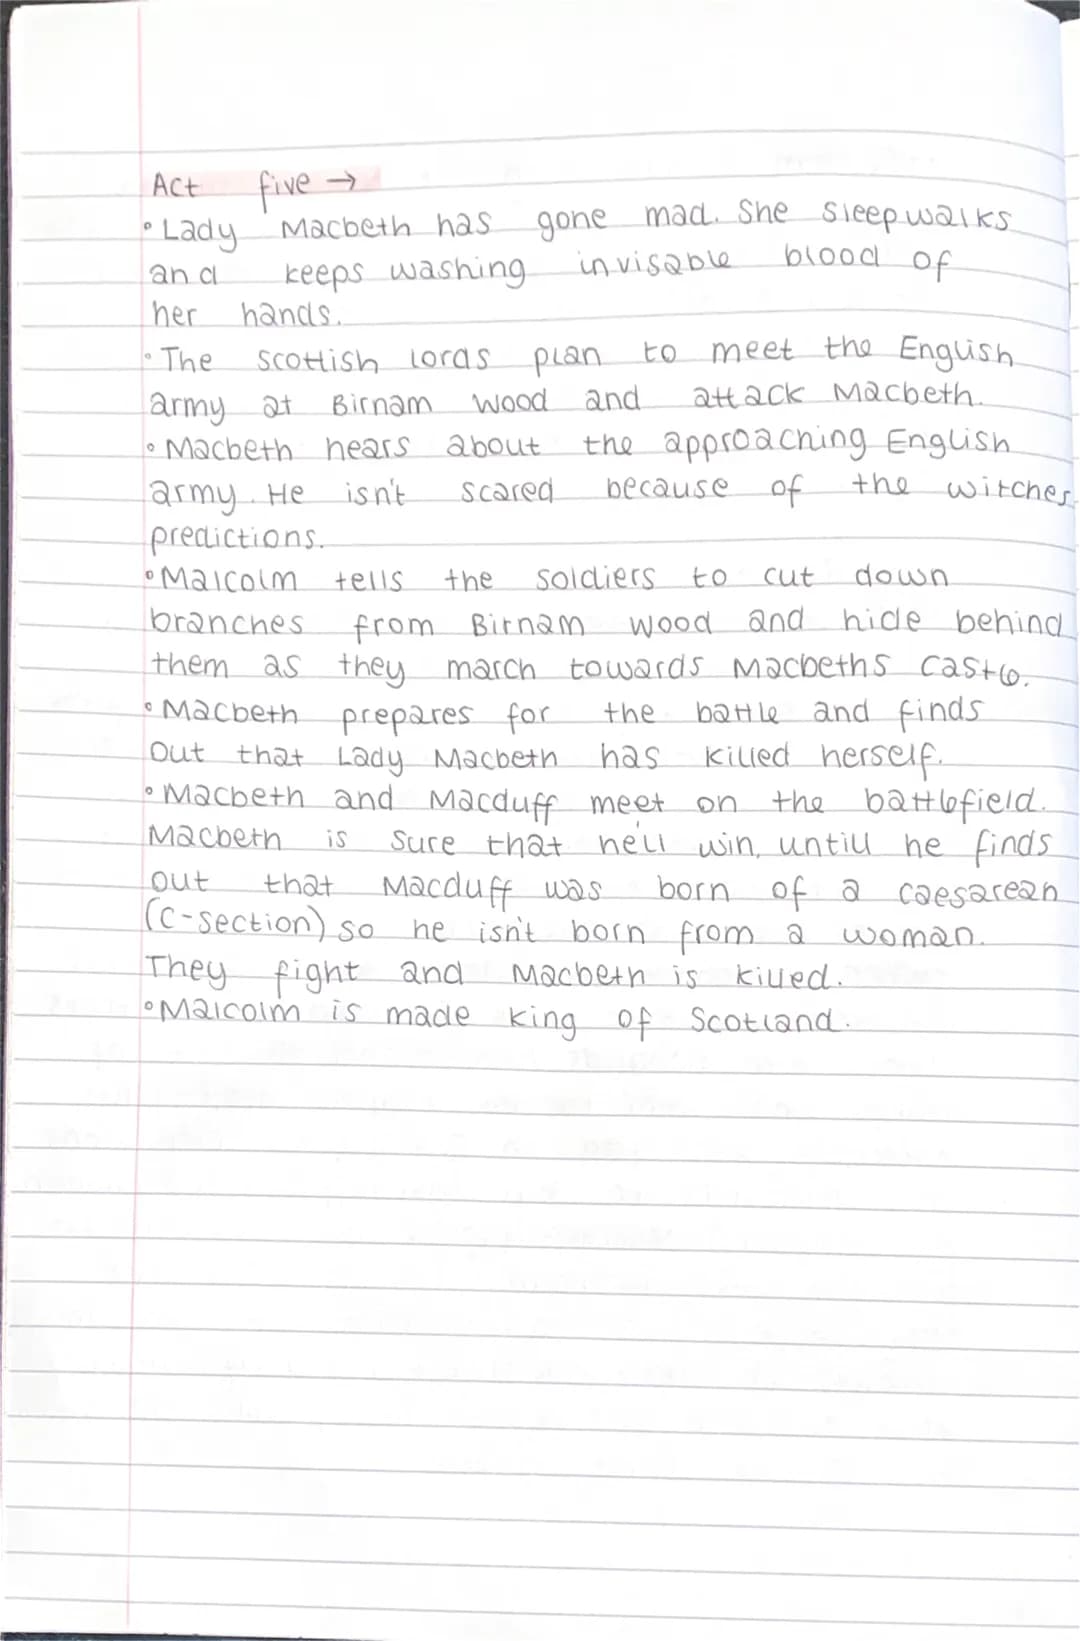 Act five →
• Lady Macbeth has gone mad. She sleepwalks
and keeps washing invisable blood of
her hands.
• The Scottish lords plan to meet the English
army at Birnam Wood and attack Macbeth.
• Macbeth hears about the approaching English
army. He isn't scared because of the witches
predictions.
• Malcolm tells the soldiers to cut down
branches from Birnam Wood and hide behind
them as they march towards Macbeths Castle.
• Macbeth prepares for the battle and finds
out that Lady Macbeth has killed herself.
• Macbeth and Macduff meet on the battlefield.
Macbeth is sure that he'll win, untill he finds
out that Macduff was born of a caesarean
(C-section) so he isn't born from a woman.
They fight and Macbeth is killed.
• Malcolm is made king of Scotland.